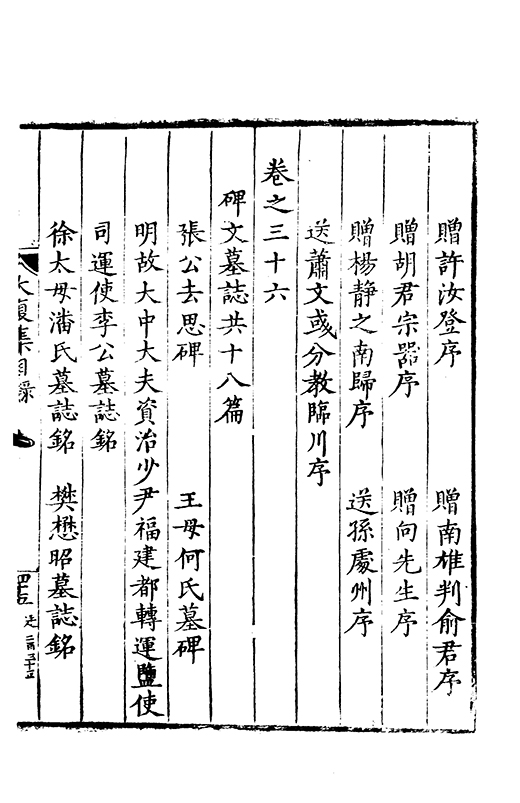 贈許汝登序　贈南雄判俞君序
贈胡君宗器序　贈向先生序
贈楊静之南歸序　送孫處州序
送蕭文彧分教臨川序
卷之三十六
碑文墓誌共十八篇
張公去思碑　王母何氏墓碑
明故大中大夫資治少尹福建都轉運鹽使
司運使李公墓誌銘
徐太母潘氏墓誌銘　樊懋昭墓誌銘
集目錄